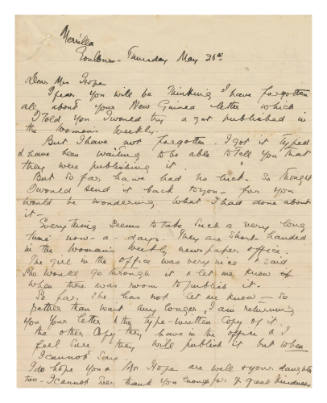 Merilla
Goulburn - Thursday May 25th
Dear Mrs Hope
I fear you will be thinking I have forgotten
all about your New Guinea letter which
I told you I would try & get published in
the Womans Weekly.
But I have not forgotten. I got it typed
& have been waiting to be able to tell you that
they were publishing it.
But so far have had no luck. So thought
I would send it back to you - for you
would be wondering what I had done about
it -
Everything seems to take such a very long
time now-a-days. They are short handed
in the Womans Weekly newspaper office.
The girl in the office was very nice & said
she would go through it & let me know if
when there was room to publish it.
So far, she has not let me know - so
rather than wait any longer I am returning
you your letter & the type-written copy of it.
The other copy they have in the office & I
feel sure they will publish it but when
I cannot say.
I do hope you & Mr Hope are well & your daughter
too - I cannot ever thank you enough for yr great kindness